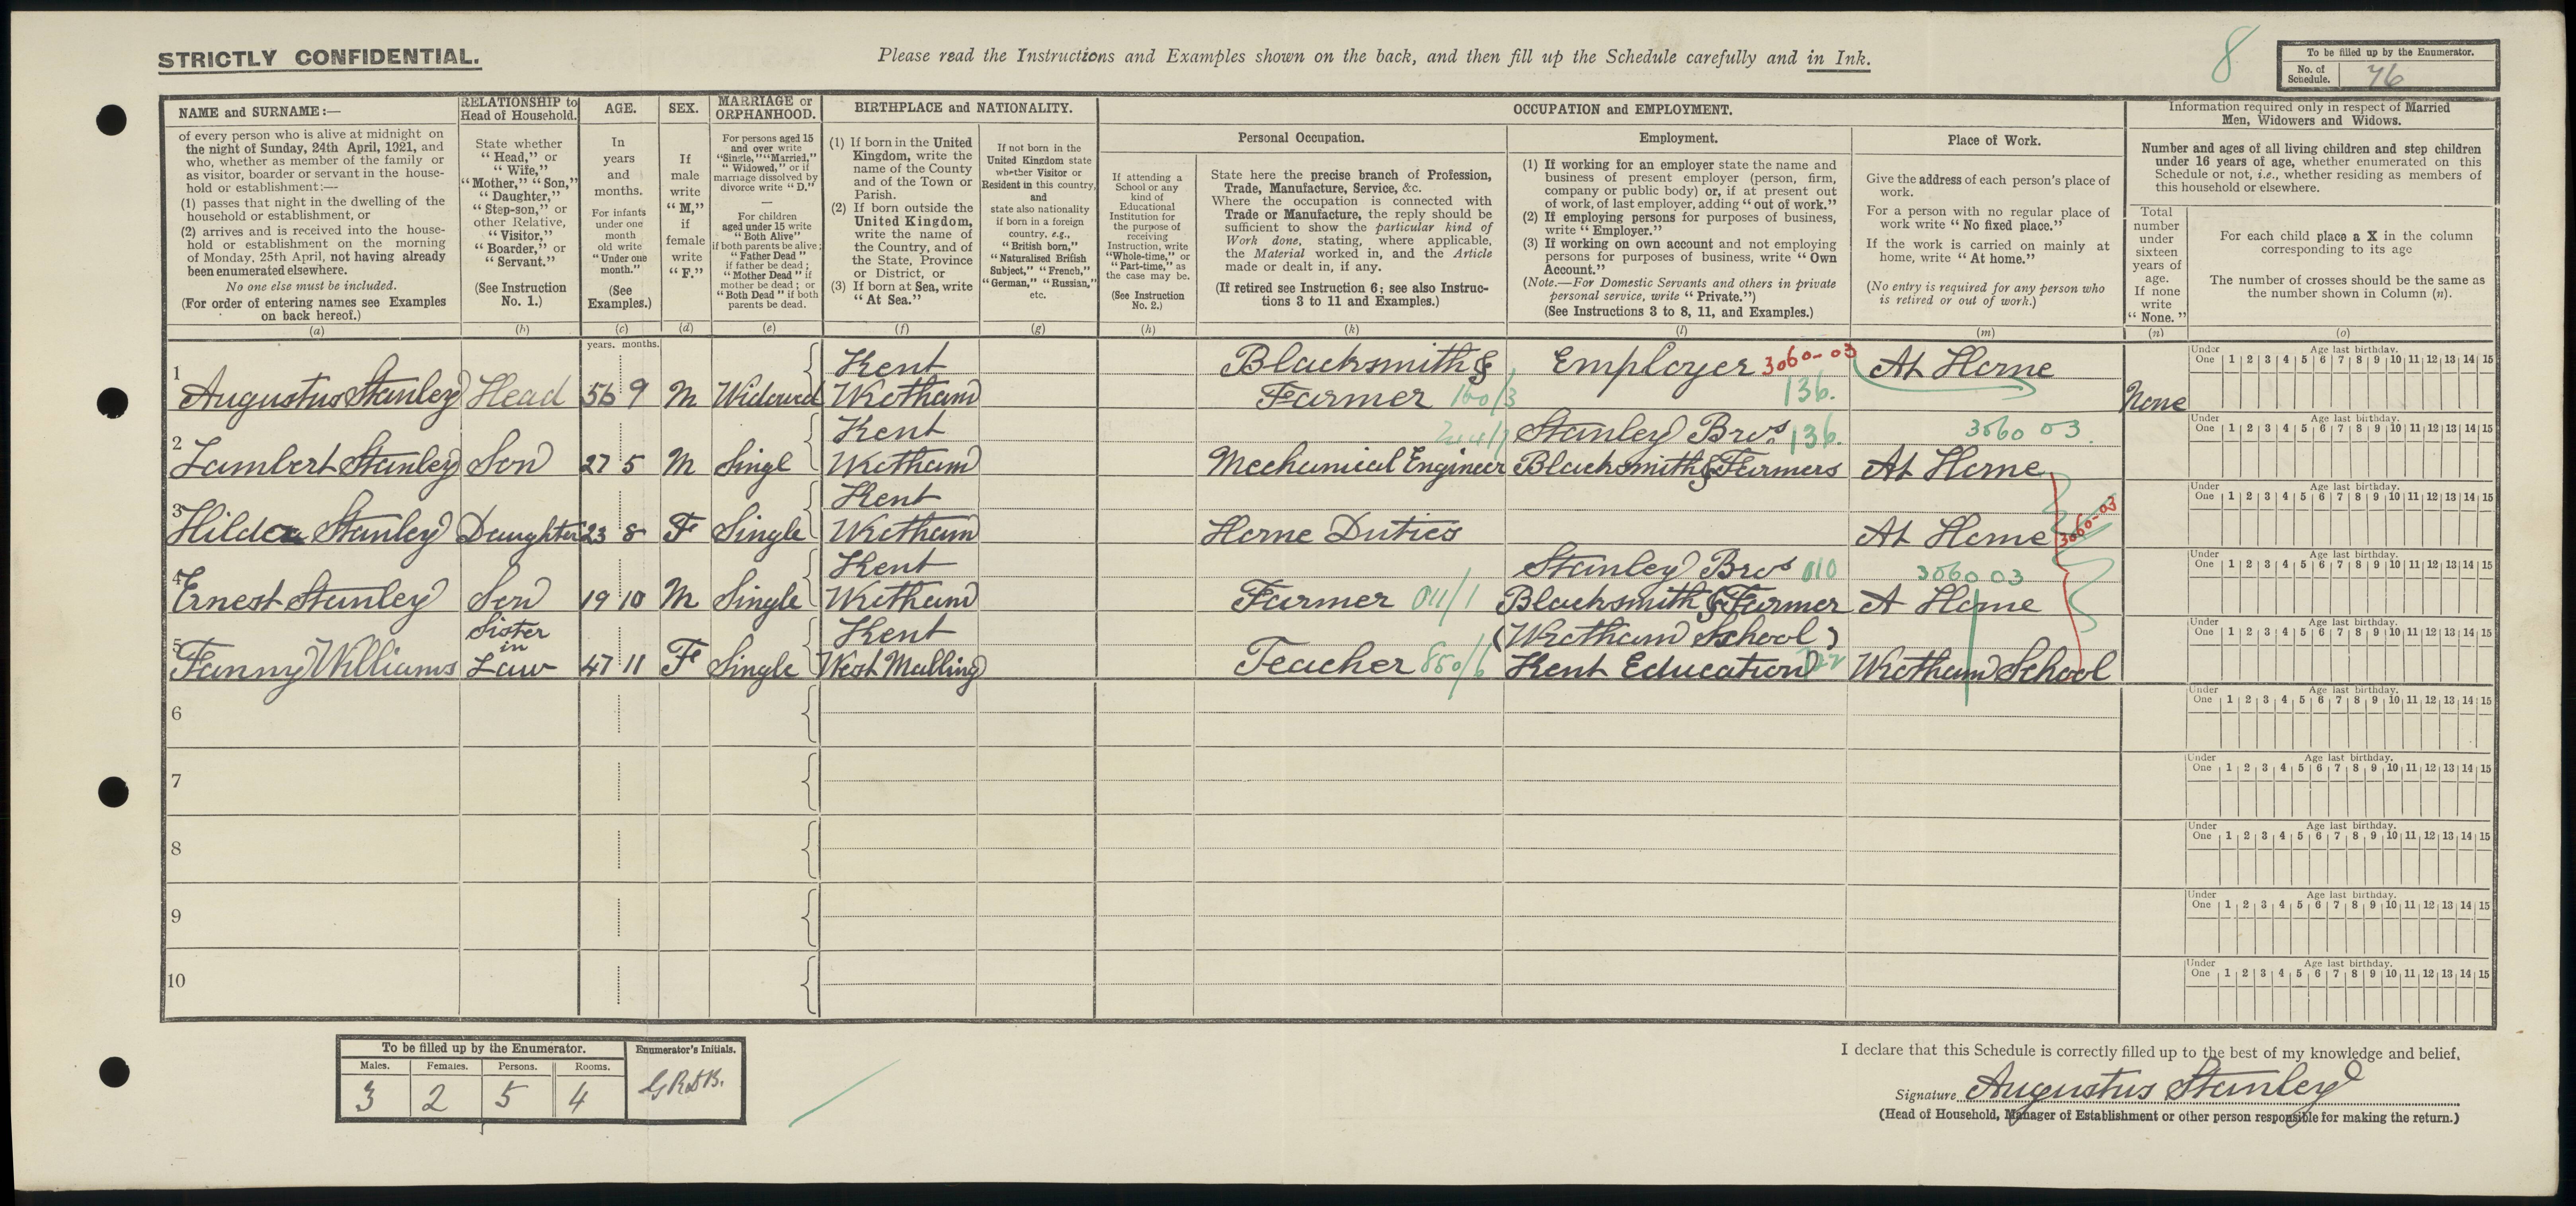 STRICTLY CONFIDENTIAL.
Please read the Instructions and Examples shown on the back, and then fill up the Schedule carefully and in Ink.
8
To be filled up by the Enumerator.
No. of Schedule. 76
NAME and SURNAME:—
of every person who is alive at midnight on
the night of Sunday, 24th April, 1921, and
who, whether as member of the family or
as visitor, boarder or servant in the house-
hold or establishment:—
(1) passes that night in the dwelling of the
household or establishment, or
(2) arrives and is received into the house-
hold or establishment on the morning
of Monday, 25th April, not having already
been enumerated elsewhere.
No one else must be included.
(For order of entering names see Examples
on back hereof.)
(a)
RELATIONSHIP to
Head of Household.
State whether
"Head," or
"Wife,"
"Mother," "Son,"
"Daughter,"
"Step-son," or
other Relative,
"Visitor,"
"Boarder," or
"Servant."
(See Instruction
No. 1.)
(b)
AGE.
In
years
and
months.
For infants
under one
month
old write
"Under one
month."
(See
Examples.)
(c)
SEX.
If
male
write
"M,"
if
female
write
"F."
(d)
MARRIAGE or
ORPHANHOOD.
For persons aged 15
and over write
"Single," "Married,"
"Widowed," or if
marriage dissolved by
divorce write "D."
—
For children
aged under 15 write
"Both Alive"
if both parents be alive;
"Father Dead"
if father be dead;
"Mother Dead" if
mother be dead; or
"Both Dead" if both
parents be dead.
(e)
BIRTHPLACE and NATIONALITY.
(1) If born in the United
Kingdom, write the
name of the County
and of the Town or
Parish.
(2) If born outside the
United Kingdom,
write the name of
the Country, and of
the State, Province
or District, or
(3) If born at Sea, write
"At Sea."
(f)
If not born in the
United Kingdom state
whether Visitor or
Resident in this country,
and
state also nationality
if born in a foreign
country, e.g.,
"British born,"
"Naturalised British
Subject," "French,"
"German," "Russian,"
etc.
(g)
OCCUPATION and EMPLOYMENT.
If attending a
School or any
kind of
Educational
Institution for
the purpose of
receiving
Instruction, write
"Whole-time," or
"Part-time," as
the case may be.
(See Instruction
No. 2.)
(h)
Personal Occupation.
State here the precise branch of Profession,
Trade, Manufacture, Service, &c.
Where the occupation is connected with
Trade or Manufacture, the reply should be
sufficient to show the particular kind of
Work done, stating, where applicable,
the Material worked in, and the Article
made or dealt in, if any.
(If retired see Instruction 6; see also Instruc-
tions 3 to 11 and Examples.)
(k)
Employment.
(1) If working for an employer state the name and
business of present employer (person, firm,
company or public body) or, if at present out
of work, of last employer, adding "out of work."
(2) If employing persons for purposes of business,
write "Employer."
(3) If working on own account and not employing
persons for purposes of business, write "Own
Account."
(Note.—For Domestic Servants and others in private
personal service, write "Private.")
(See Instructions 3 to 8, 11, and Examples.)
(l)
Place of Work.
Give the address of each person's place of
work.
For a person with no regular place of
work write "No fixed place."
If the work is carried on mainly at
home, write "At home."
(No entry is required for any person who
is retired or out of work.)
(m)
Information required only in respect of Married
Men, Widowers and Widows.
Number and ages of all living children and step children
under 16 years of age, whether enumerated on this
Schedule or not, i.e., whether residing as members of
this household or elsewhere.
Total
number
under
sixteen
years of
age.
If none
write
"None."
(n)
For each child place a X in the column
corresponding to its age
The number of crosses should be the same as
the number shown in Column (n).
(o)
years. months.
1 Augustus Stanley Head 56 9 M Widowed Kent Wrotham Blacksmith & Farmer 160/3 Employer 3060-03 136. At Home None
Under One Age last birthday. 1 2 3 4 5 6 7 8 9 10 11 12 13 14 15
2 Lambert Stanley Son 27 5 M Singl Kent Wrotham Mechanical Engineer Stanley Bros 136. Blacksmith & Farmers 3060 03. At Home
Under One Age last birthday. 1 2 3 4 5 6 7 8 9 10 11 12 13 14 15
3 Hilda Stanley Daughter 23 8 F Single Kent Wrotham Home Duties At Home 3060-03
Under One Age last birthday. 1 2 3 4 5 6 7 8 9 10 11 12 13 14 15
4 Ernest Stanley Son 19 10 M Single Kent Wrotham Farmer 011/1 Stanley Bros 010 Blacksmith & Farmer 3060 03 A Home
Under One Age last birthday. 1 2 3 4 5 6 7 8 9 10 11 12 13 14 15
5 Fanny Williams Sister in Law 47 11 F Single Kent West Malling Teacher 850/6 (Wrotham School) Kent Education Wrotham School
Under One Age last birthday. 1 2 3 4 5 6 7 8 9 10 11 12 13 14 15
6
Under One Age last birthday. 1 2 3 4 5 6 7 8 9 10 11 12 13 14 15
7
Under One Age last birthday. 1 2 3 4 5 6 7 8 9 10 11 12 13 14 15
8
Under One Age last birthday. 1 2 3 4 5 6 7 8 9 10 11 12 13 14 15
9
Under One Age last birthday. 1 2 3 4 5 6 7 8 9 10 11 12 13 14 15
10
Under One Age last birthday. 1 2 3 4 5 6 7 8 9 10 11 12 13 14 15
To be filled up by the Enumerator.
Males. Females. Persons. Rooms.
3 2 5 4
Enumerator's Initials.
I declare that this Schedule is correctly filled up to the best of my knowledge and belief.
Signature Augustus Stanley
(Head of Household, Manager of Establishment or other person responsible for making the return.)